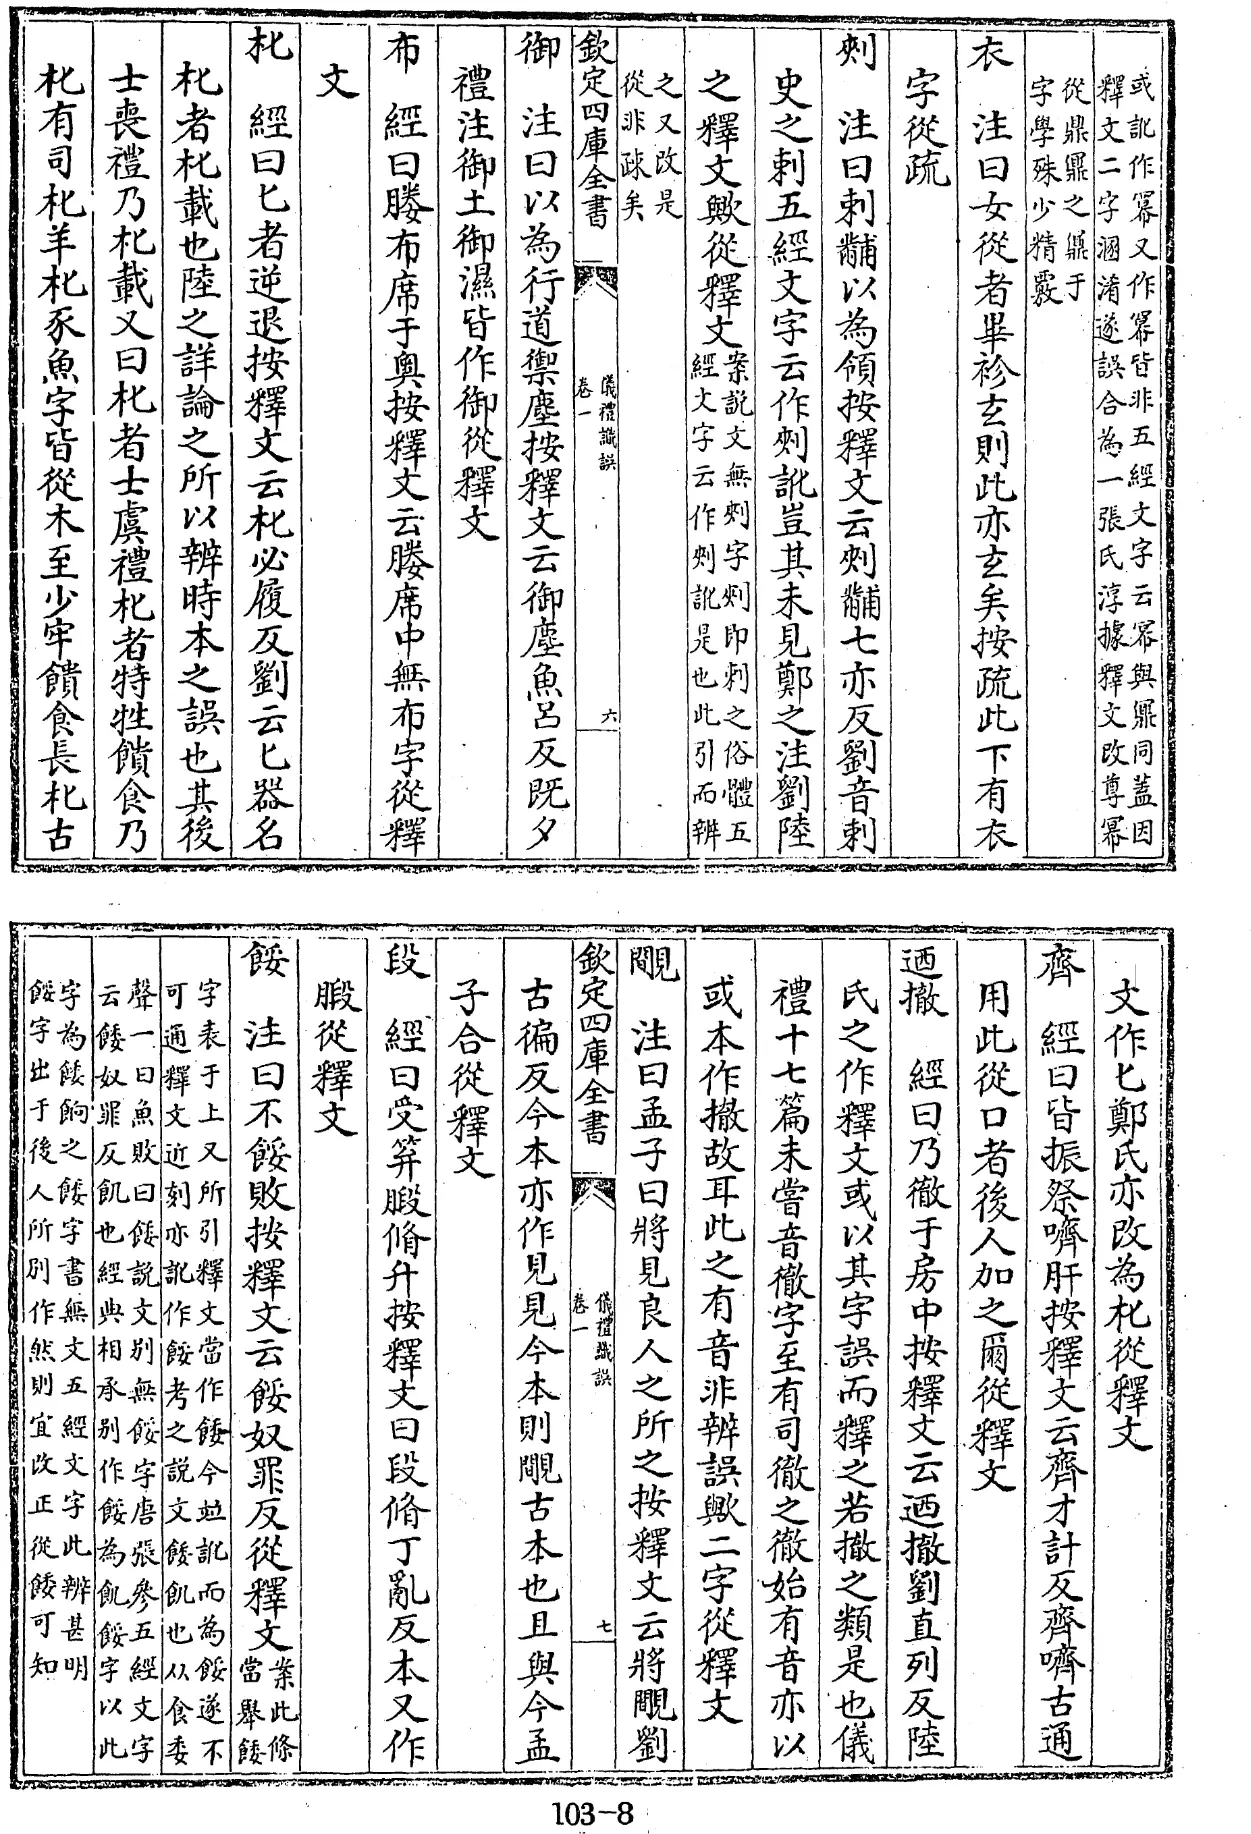 或訛作冪又作幂皆非五經文字云冪與鼏同蓋因
釋文二字溷淆遂誤合為一張氏淳據釋文改尊冪
從鼎鼏之鼏于
字學殊少精覈
衣　注曰女從者畢袗玄則此亦玄矣按疏此下有衣
字從疏
刾　注曰刺黼以為領按釋文云刾黼七亦反劉音刺
史之刺五經文字云作刾訛豈其未見鄭之注劉陸
之釋文歟從釋文案說文無刾字刾即刺之俗體五
經文字云作刾訛是也此引而辨
之又改是
從非疎矣
欽定四庫全書
儀禮識誤
卷一
六
御　注曰以為行道禦塵按釋文云御塵魚呂反既夕
禮注御土御濕皆作御從釋文
布　經曰媵布席于奥按釋文云媵席中無布字從釋
文
朼　經曰匕者逆退按釋文云朼必履反劉云匕器名
朼者朼載也陸之詳論之所以辨時本之誤也其後
士喪禮乃朼載又曰朼者士虞禮朼者特牲饋食乃
朼有司朼羊朼豕魚字皆從木至少牢饋食長朼古
文作匕鄭氏亦改為朼從釋文
齊　經曰皆振祭嚌肝按釋文云齊才計反齊嚌古通
用此從口者後人加之爾從釋文
迺撤　經曰乃徹于房中按釋文云迺撤劉直列反陸
氏之作釋文或以其字誤而釋之若撤之類是也儀
禮十七篇未嘗音徹字至有司徹之徹始有音亦以
或本作撤故耳此之有音非辨誤歟二字從釋文
覵　注曰孟子曰將見良人之所之按釋文云將覵劉
欽定四庫全書
儀禮識誤
卷一
七
古徧反今本亦作見見今本則覵古本也且與今孟
子合從釋文
段　經曰受笲腶脩升按釋文曰段脩丁亂反本又作
腶從釋文
餒　注曰不餒敗按釋文云餒奴罪反從釋文案此條
當舉餧
字表于上又所引釋文當作餧今並訛而為餒遂不
可通釋文近刻亦訛作餒考之說文餧飢也从食委
聲一曰魚敗曰餧說文別無餒字唐張參五經文字
云餧奴罪反飢也經典相承别作餒為飢餒字以此
字為餧餉之餧字書無文五經文字此辨甚明
餒字出于後人所别作然則宜改正從餧可知
103-8